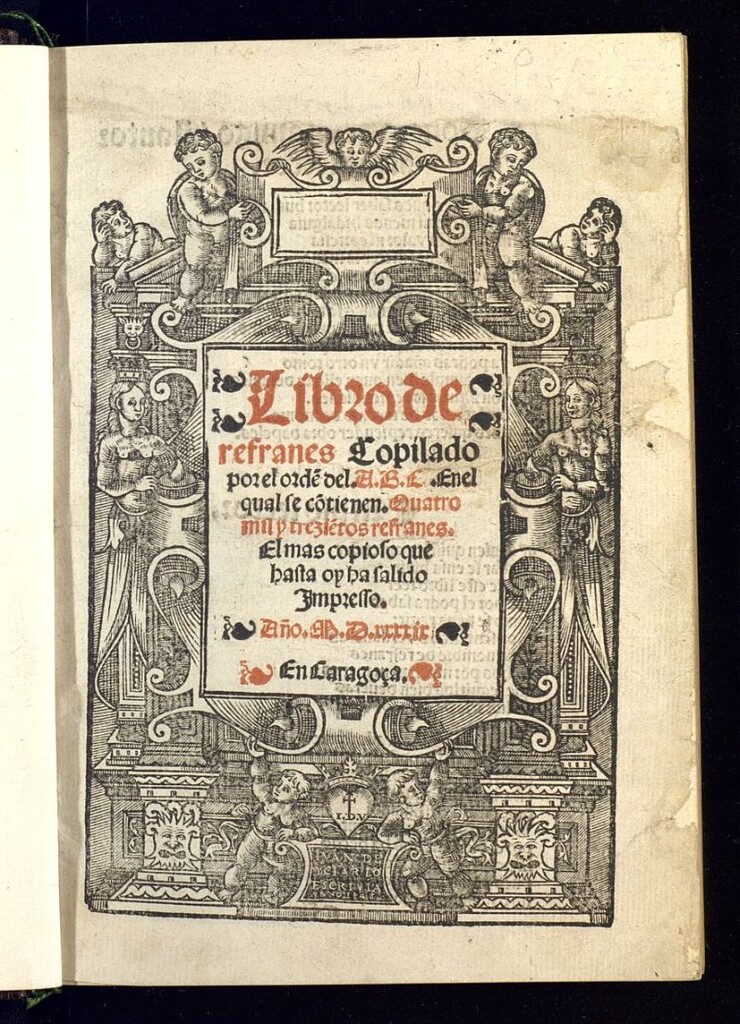 Libro de
refranes Copilado
por el ordẽ del. A. B. C. En el
qual se cõtienen. Quatro
mil y treziẽtos refranes.
El mas copioso que
hasta oy ha salido
Impresso.
Año. M. D. xxxxix
En Caragoça.
I. D. V
IVAN DE